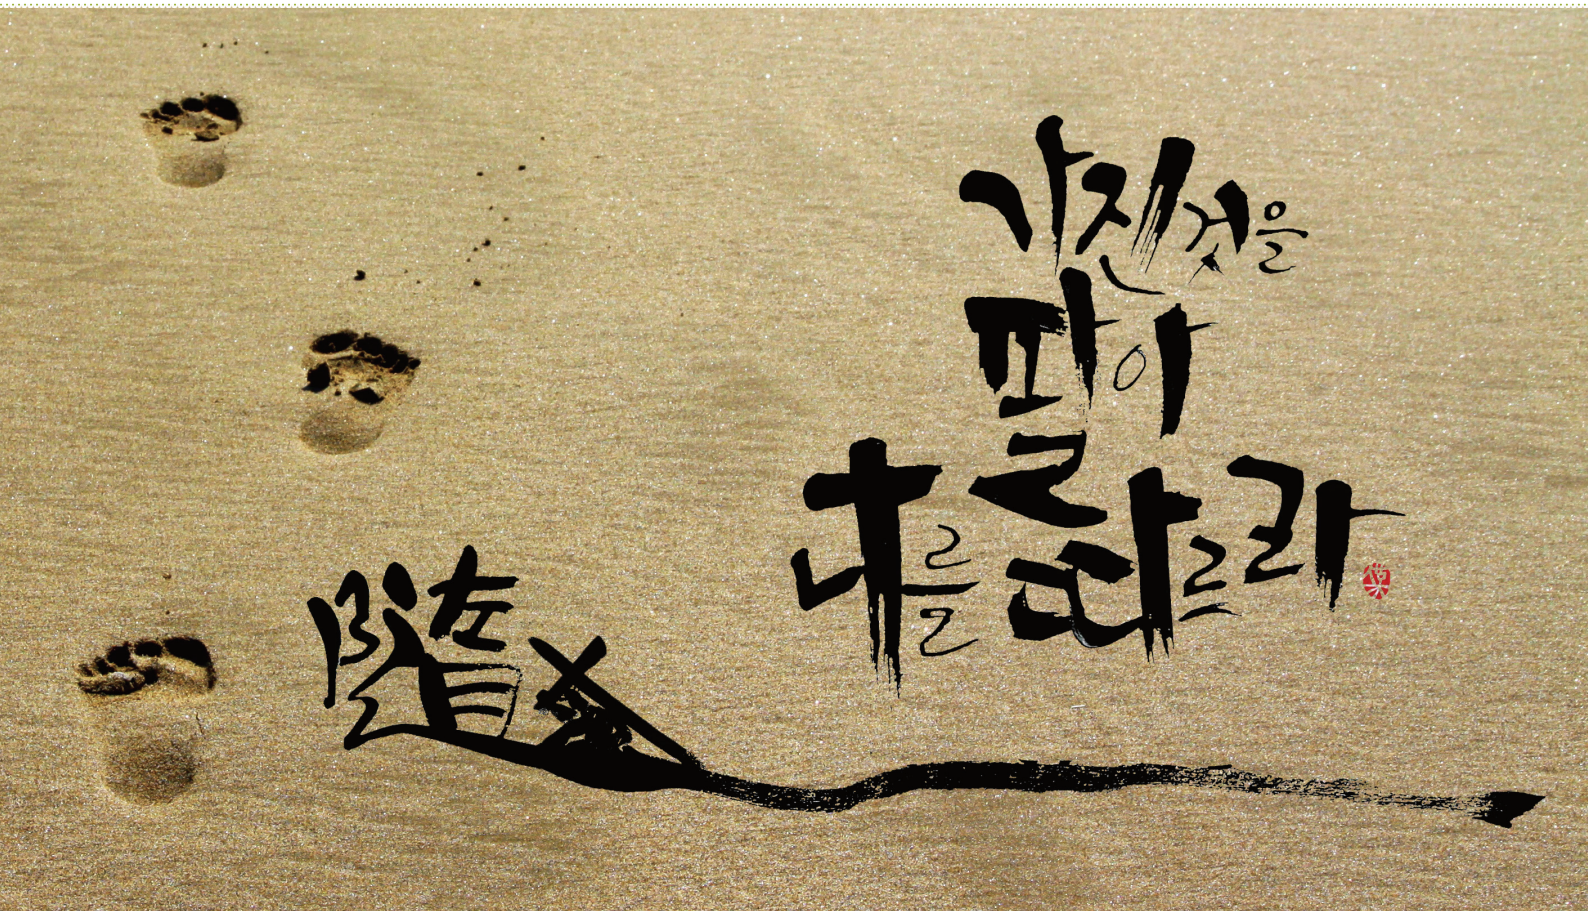 가진 것을
팔아
나를 따르라
隨